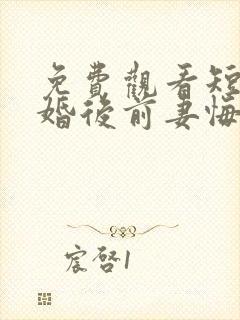 免費觀看短
婚後前妻悔
宸啓1